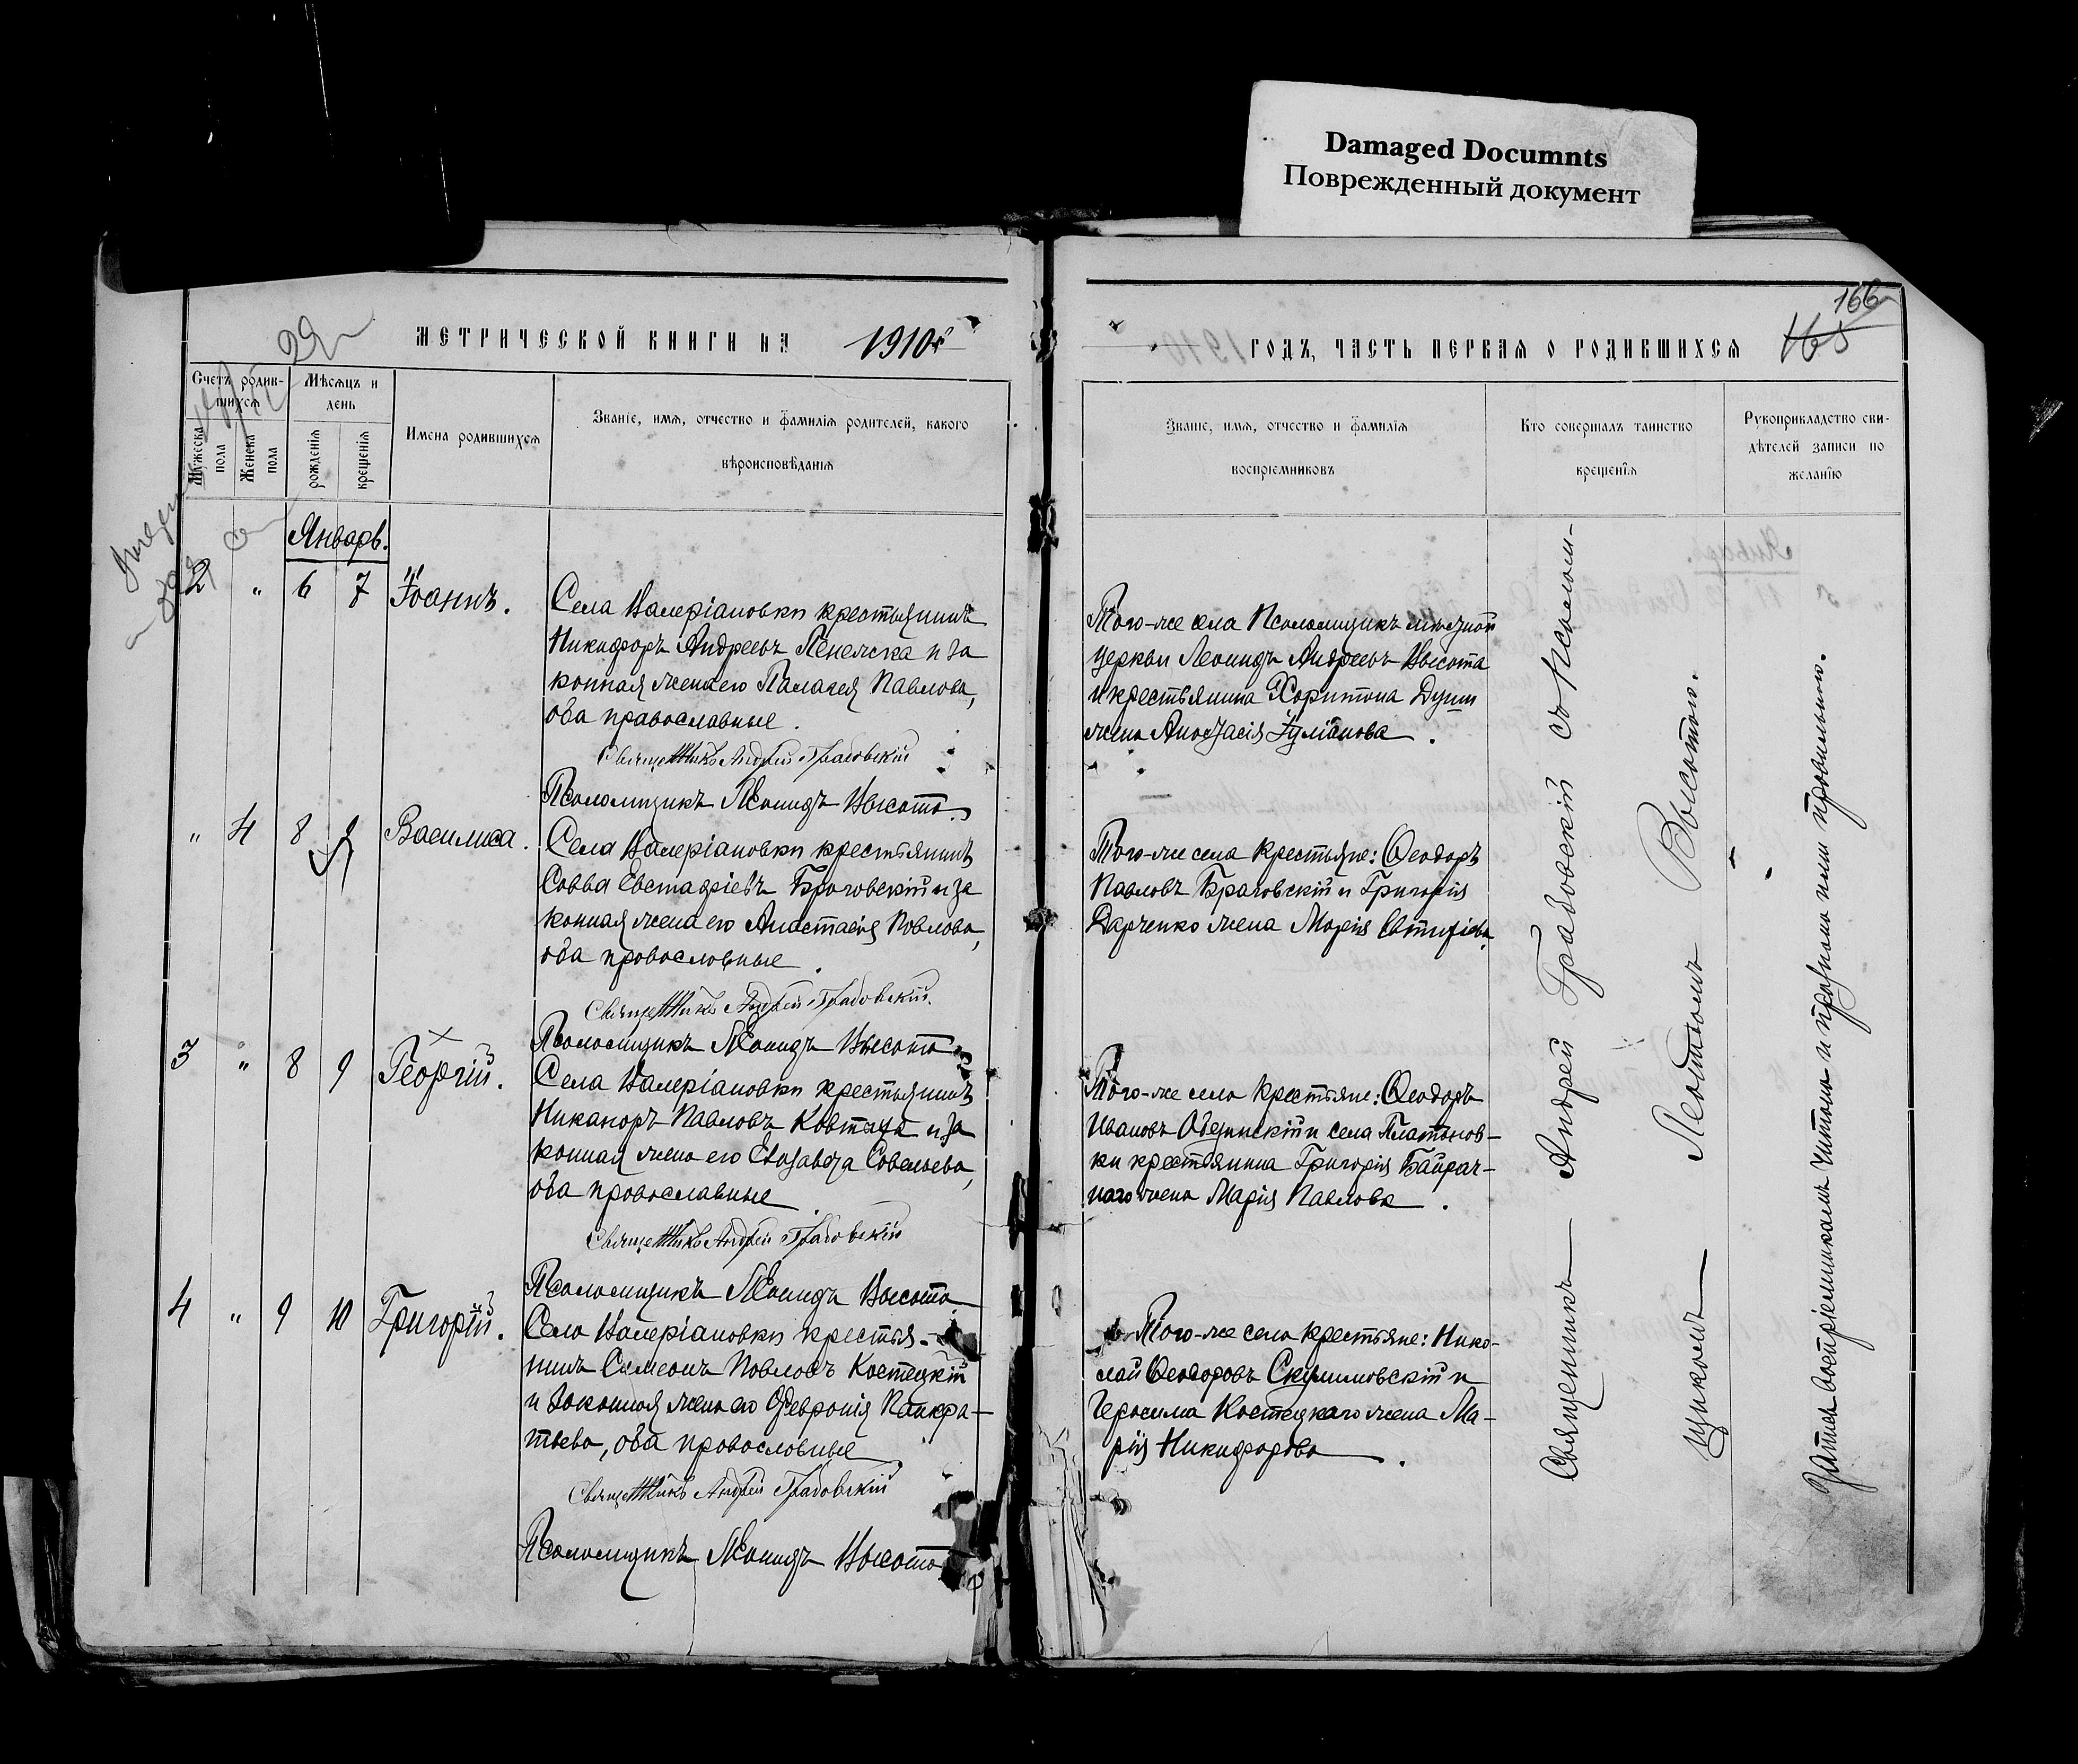 Damaged Documnts
Поврежденный документ
166
165
МЕТРИЧЕСКОЙ КНИГИ НА 1910 г
ГОДЪ, ЧАСТЬ ПЕРВАЯ О РОДИВШИХСЯ
Счетъ родив-
шихся
Мужеска пола
Женска пола
Мѣсяцъ и
день
рожденія
крещенія
Имена родившихся
Званіе, имя, отчество и фамилія родителей, какого
вѣроисповѣданія
Званіе, имя, отчество и фамилія
воспріемниковъ
Кто совершалъ таинство
крещенія
Рукоприкладство сви-
дѣтелей записи по
желанію
Январь.
2 " 6 7 Іоаннъ.
Села Валеріановки крестьянинъ
Никифоръ Андреевъ и за
конная жена его Палагея Павлова,
оба православные.
Священникъ Андрей Грабовскій
Псаломщикъ Леонидъ Высота
Того-же села Псаломщикъ мѣстной
церкви Леонидъ Андреевъ Высота
и крестьянина Харитона
жена Анастасія Іуліанова.
" 4 8 9 Василиса.
Села Валеріановки крестьянинъ
Савва Евстафіевъ Браговскій и за
конная жена его Анастасія Павлова,
оба православные.
Священникъ Андрей Грабовскій.
Псаломщикъ Леонидъ Высота
Того-же села крестьяне: Ѳеодоръ
Павловъ Браговскій и Григорія
жена Марія Евтихіева.
3 " 8 9 Георгій.
Села Валеріановки крестьянинъ
Никаноръ Павловъ и за
конная жена его Елизавета Савельева,
оба православные.
Священникъ Андрей Грабовскій
Псаломщикъ Леонидъ Высота
Того-же села крестьяне: Ѳеодоръ
Ивановъ и села Платонов-
ки крестьянина Григорія Байрач-
наго жена Марія Павлова.
4 " 9 10 Григорій.
Села Валеріановки крестья-
нинъ Симеонъ Павловъ Костецкій
и законная жена его Ѳевронія Панкра-
тьева, оба православные
Священникъ Андрей Грабовскій
Псаломщикъ Леонидъ Высота
Того-же села крестьяне: Нико-
лай Ѳеодоровъ и
Герасима Костецкаго жена Ма-
рія Никифорова.
Священникъ Андрей Грабовскій съ Псалом-
щикомъ Леонидомъ Высотою.
Запись воспріемникамъ читана и признана ими правильною.